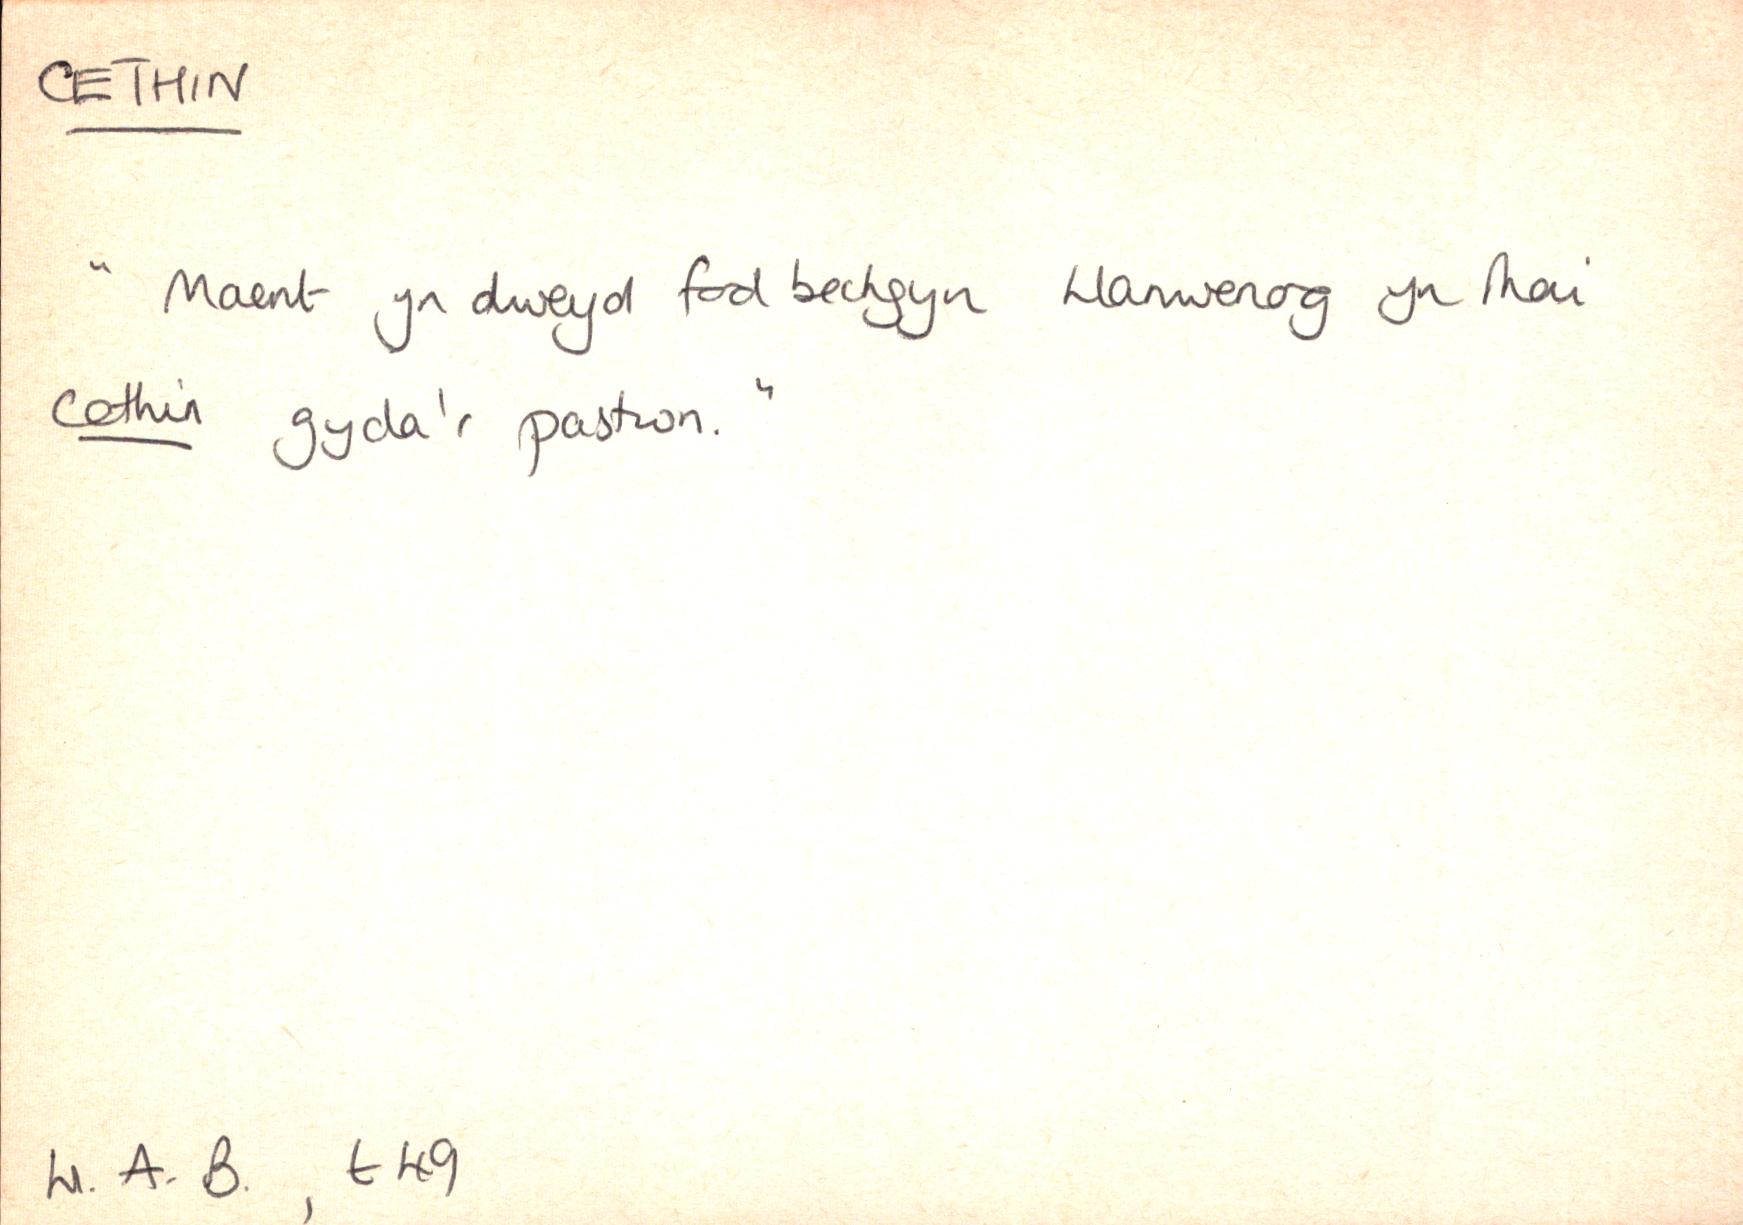 CETHIN
" Maent yn dweyd fod bechgyn Llanwenog yn rhai
cethin gyda'r pastwn. "
Ll. A. B. , t 49